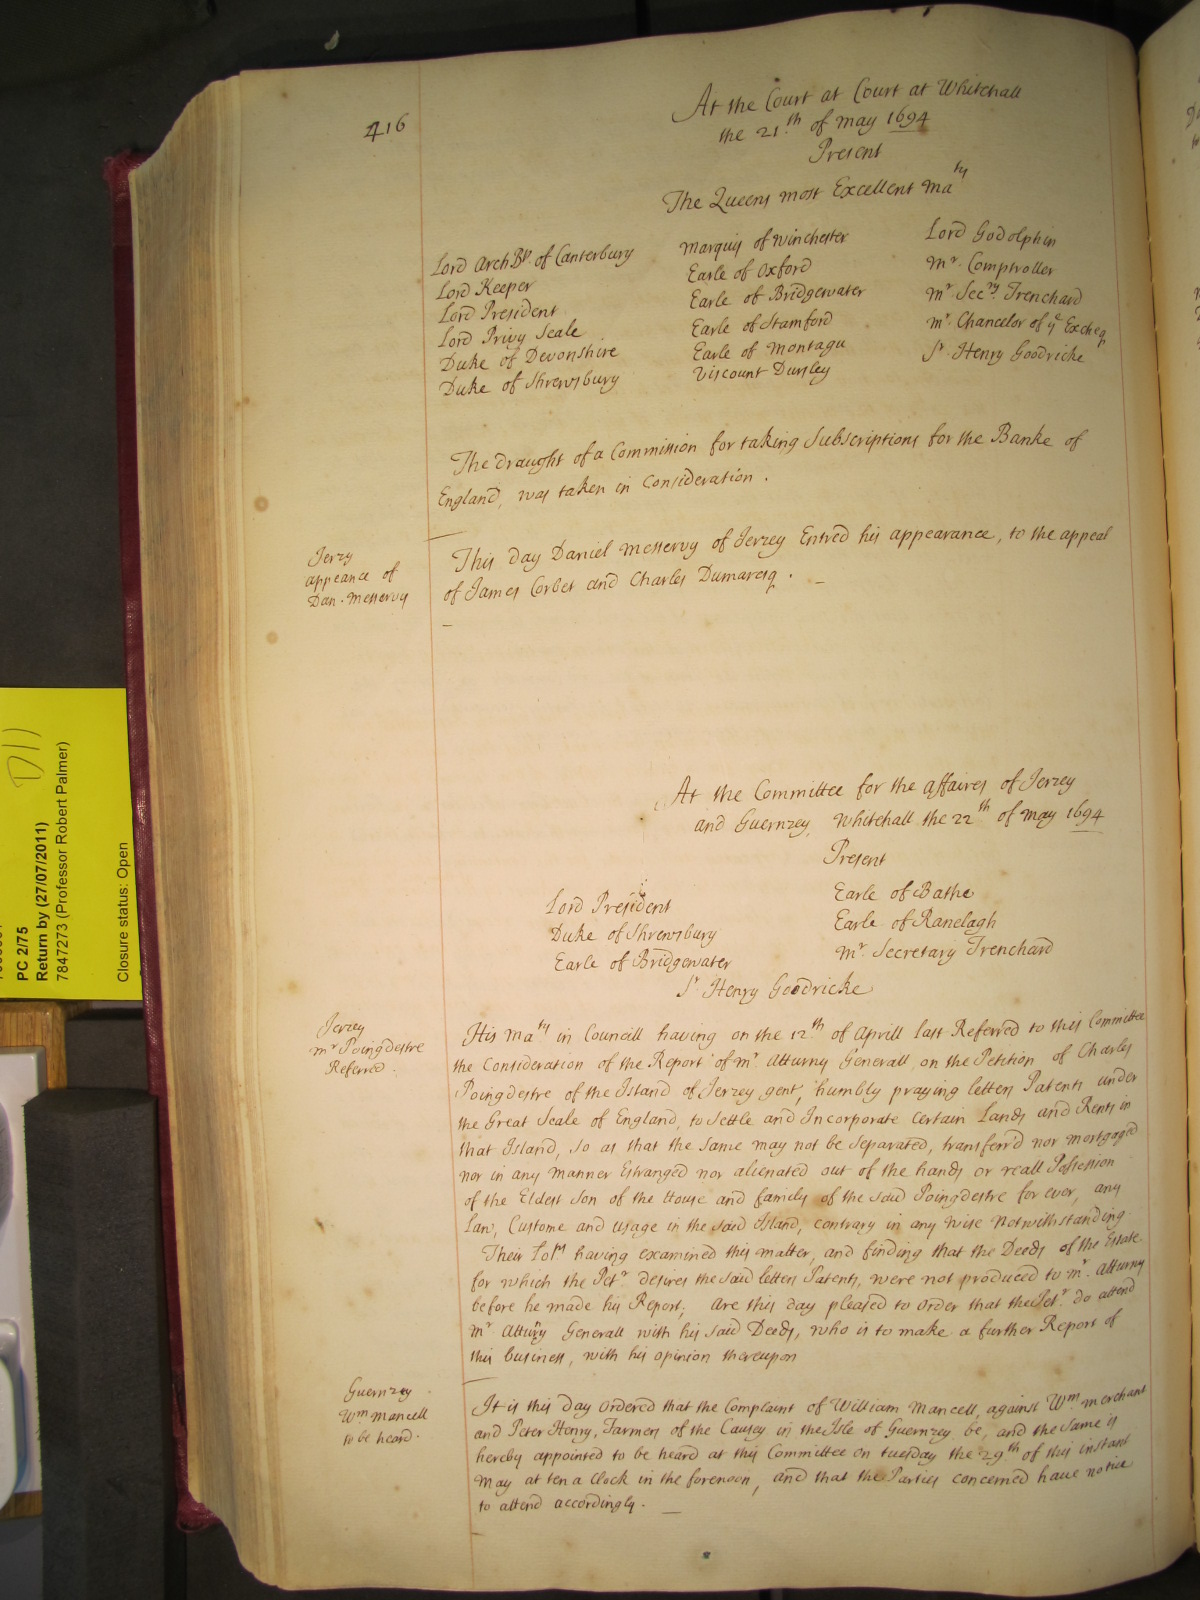 416
At the Court at Court at Whitehall
the 21.th of may 1694
Present
The Queens most Excellent Maty
Lord ArchBp. of Canterbury
Lord Keeper
Lord President
Lord Privy Seale
Duke of Devonshire
Duke of Shrewsbury
Marquis of Winchester
Earle of Oxford
Earle of Bridgewater
Earle of Stamford
Earle of Montagu
Viscount Dursley
Lord Godolphin
Mr. Comptroller
Mr Secry. Trenchard
Mr. Chancelor of ye Excheq
Sr. Henry Goodricke
The draught of a Commission for taking Subscriptions for the Banke of
England, was taken in Consideration.
Jerzy
appeance of
Dan. Messervy
This day Daniel Messervy of Jerzey Entred his appearance, to the appeal
of James Corbet and Charles Dumaresq.
At the Committee for the affaires of Jerzey
and Guernzey, Whitehall the 22th of may 1694
Present
Lord President
Duke of Shrewsbury
Earle of Bridgewater
Earle of Bathe
Earle of Ranelagh
Mr. Secretary Trenchard
Sr. Henry Goodricke
Jerzey
Mr Poingdestre
Referred.
His Maty in Councill having on the 12th of Aprill last Referred to this Committee
the Consideration of the Report of Mr. Atturny Generall, on the Petition of Charles
Poingdestre of the Island of Jerzey gent, humbly praying letters Patents under
the Great Seale of England, to Settle and Incorporate Certain Lands and Rents in
that Island, so as that the same may not be Separated, transferr'd nor mortgaged
nor in any manner Estranged nor alienated out of the hands or reall Possession
of the Eldest Son of the House and family of the said Poingdestre for ever, any
Law, Custome and usage in the said Island, contrary in any wise Notwithstanding.
Their Lops having examined this matter, and finding that the Deeds of the Estate
for which the Petr. desires the said letters Patents, were not produced to Mr. Atturny
before he made his Report, Are this day pleased to Order that the Petr. do attend
Mr Atturny Generall with his said Deeds, who is to make a further Report of
this business, with his opinion thereupon
Guernzey
Wm Mancell
to be heard.
It is this day Ordered that the Complaint of William Mancell, against Wm Merchant
and Peter Henry, Farmers of the Causey in the Isle of Guernzey be, and the Same is
hereby appointed to be heard at this Committee on tuesday the 29th of this instant
May at ten a Clock in the forenoon, and that the Parties concerned have notice
to attend accordingly.
D11
PC 2/75
Return by (27/07/2011)
7847273 (Professor Robert Palmer)
Closure status: Open